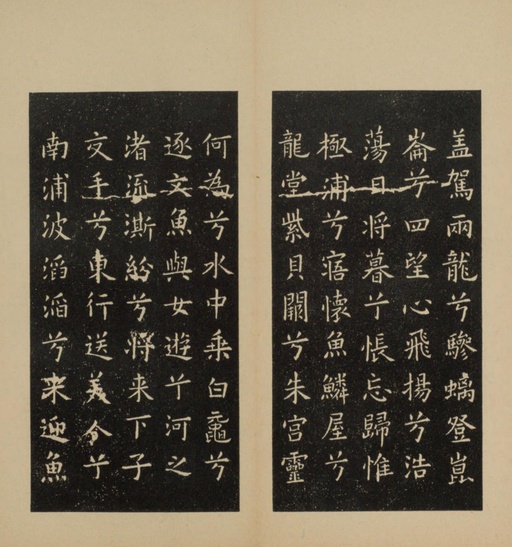 盖駕兩龍兮驂螭登崑
崙兮四望心飛揚兮浩
蕩日將暮兮悵忘歸惟
極浦兮寤懷魚鱗屋兮
龍堂紫貝闕兮朱宫靈
何為兮水中乗白黿兮
逐文魚與女遊兮河之
渚流澌紛兮將来下子
交手兮東行送美人兮
南浦波滔滔兮来迎魚